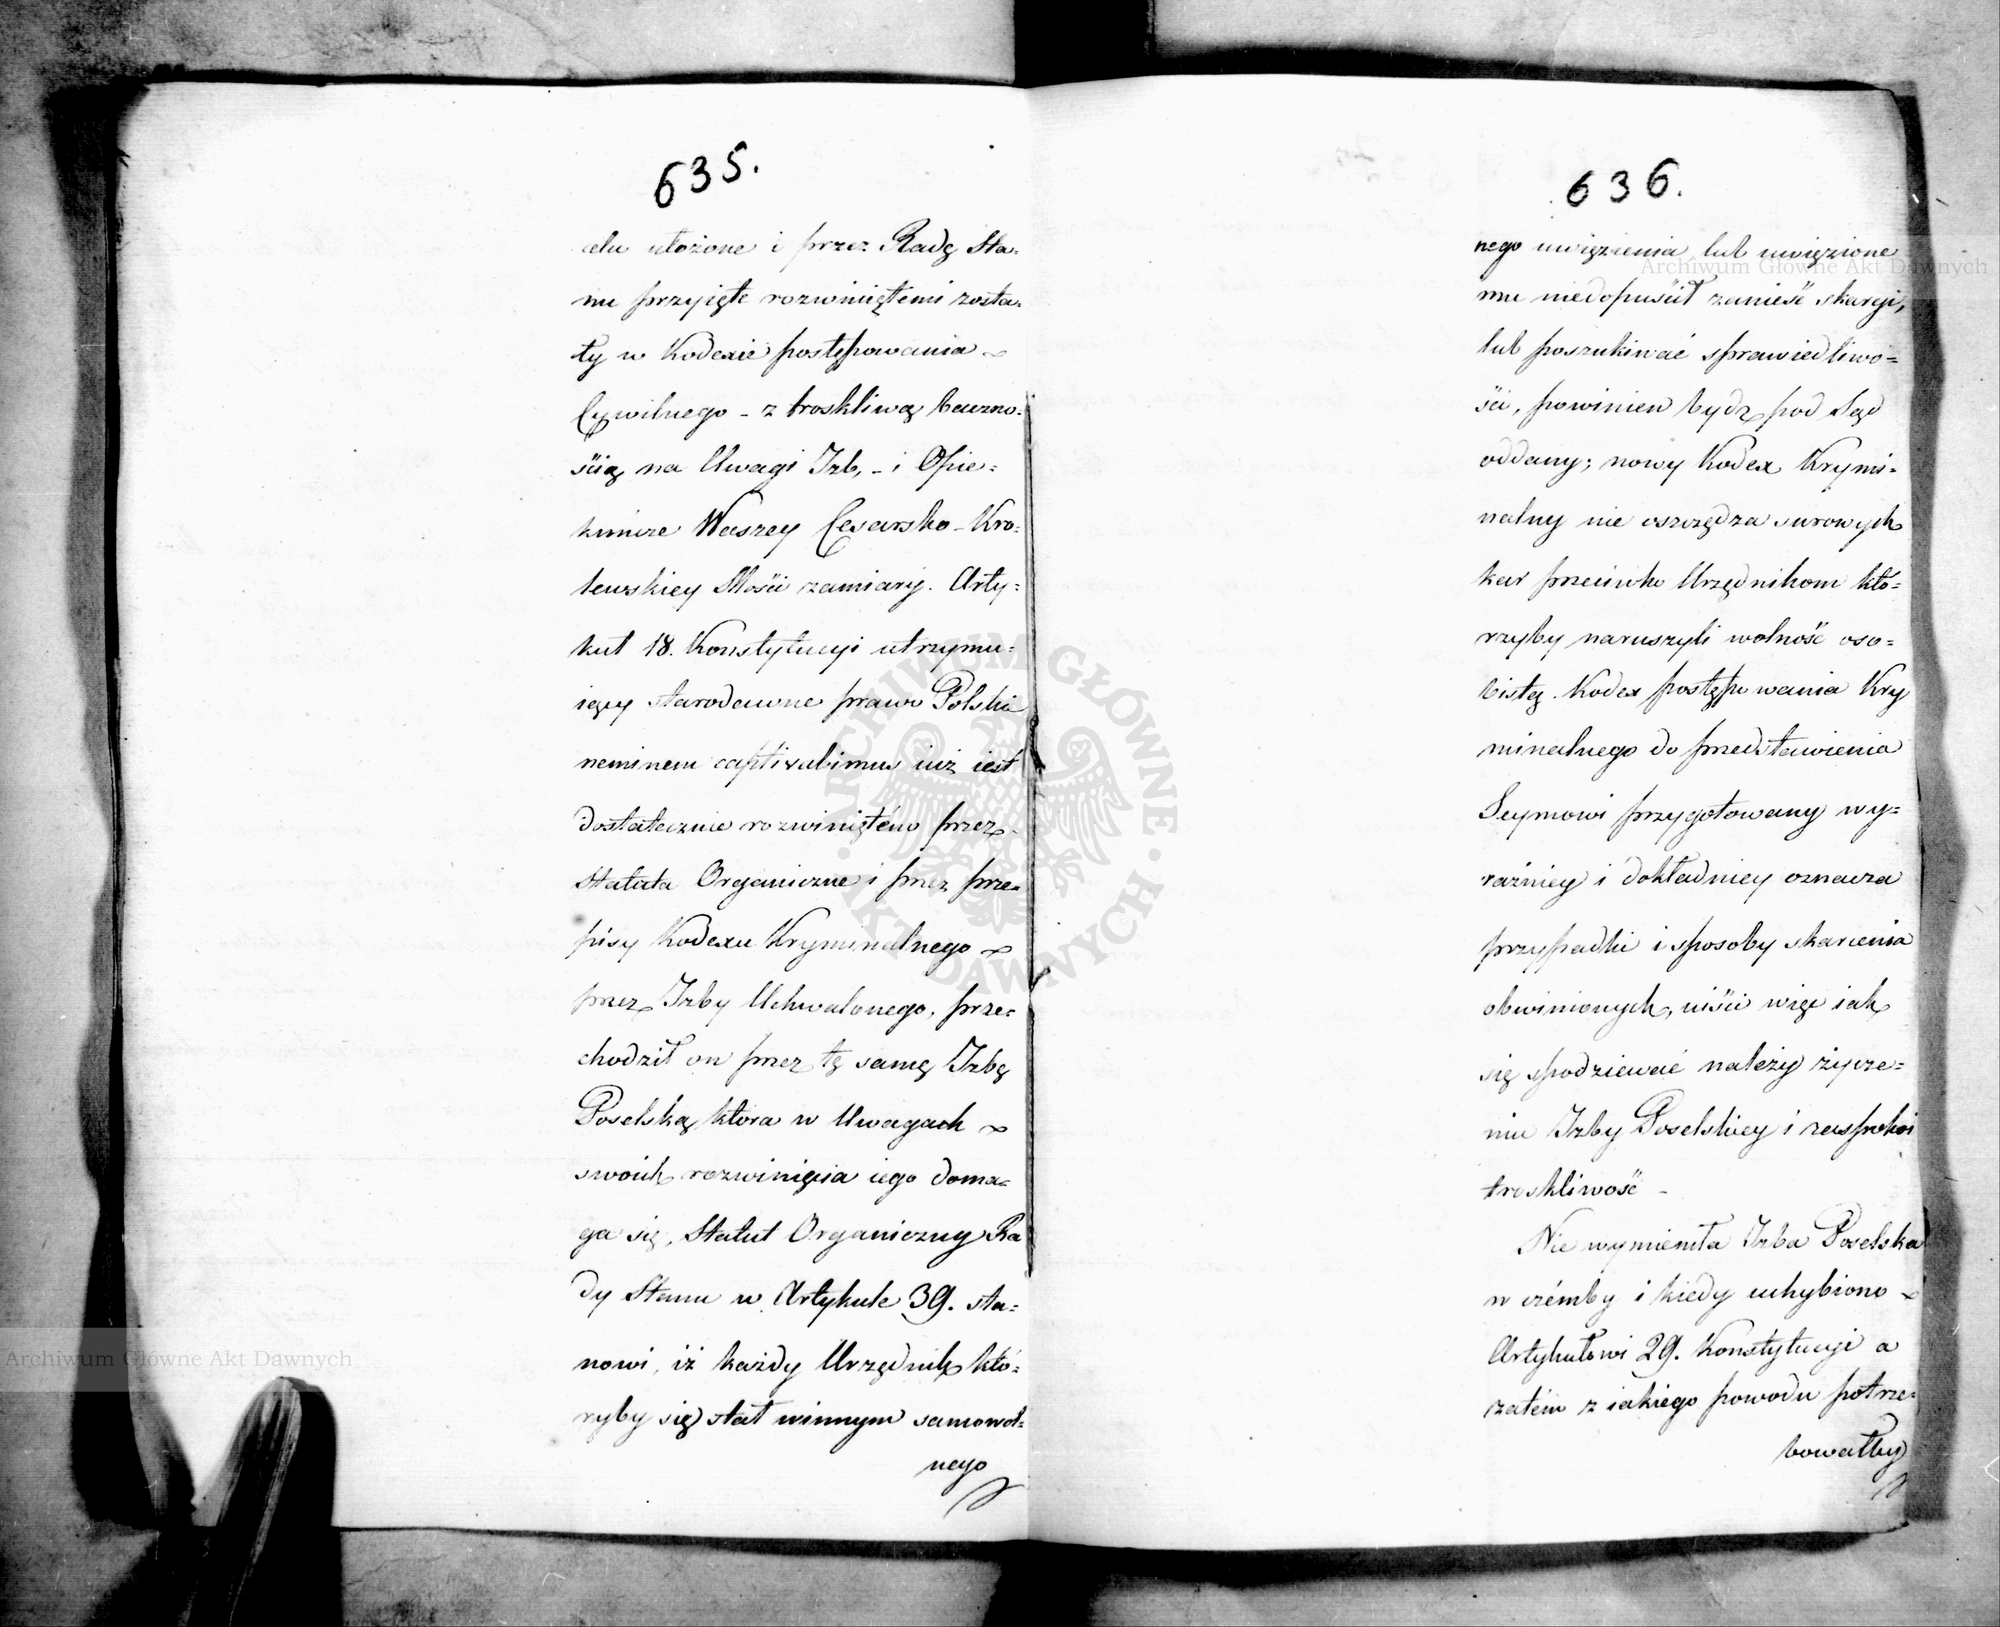 635.
celu ułożone i przez Radę Sta-
nu przyięte rozwiniętemi zosta-
ły w Kodexie postępowania
Cywilnego - z troskliwą baczno-
ścią na Uwagi Izb, - i Opie-
kuńcze Waszey Cesarsko-Kró-
lewskiey Mości zamiary. Arty-
kuł 18. Konstytucyi utrzymu-
iący starodawne prawo Polskie
neminem captivabimus iuż iest
dostatecznie rozwiniętem przez
Statuta Organiczne i przez prze-
pisy Kodexu Kryminalnego
przez Izby Uchwalonego, prze-
chodził on przez tę samę Izbę
Poselską która w Uwagach
swoich rozwinięcia iego doma-
ga się, Statut Organiczny Ra
dy Stanu w Artykule 39. sta-
nowi, iż każdy Urzędnik któ-
ryby się stał winnym samowol-
nego
636.
nego uwięzienia lub uwięzione
mu niedopuścił zanieść skargi,
lub poszukiwać sprawiedliwo=
ści, powinien bydz pod Sąd
oddany; nowy Kodex Krymi-
nalny nie oszczędza surowych
kar przeciwko Urzędnikom któ-
rzyby naruszyli wolność oso=
bistą. Kodex postępowania Kry
minalnego do przedstawienia
Seymowi przygotowany wy=
raźniey i dokładniey oznacza
przypadki i sposoby skarcenia
obwinionych, uiści więc iak
się spodziewać należy życze=
niu Izby Poselskiey i zaspokoi
troskliwość -
Nie wymieniła Izba Poselska
w czémby i kiedy uchybiono
Artykułowi 29. Konstytucyi a
zatém z iakiego powodu potrze-
bowałby
Archiwum Główne Akt Dawnych
Archiwum Główne Akt Dawnych
ARCHIWUM GŁÓWNE AKT DAWNYCH